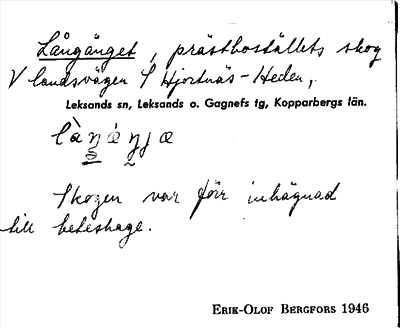 Långänget, prästboställets skog
V landsvägen S Hjortnäs-Heden,
Leksands sn, Leksands o. Gagnefs tg, Kopparbergs län.
Skogen var förr inhägnad
till beteshage.
ERIK-OLOF BERGFORS 1946